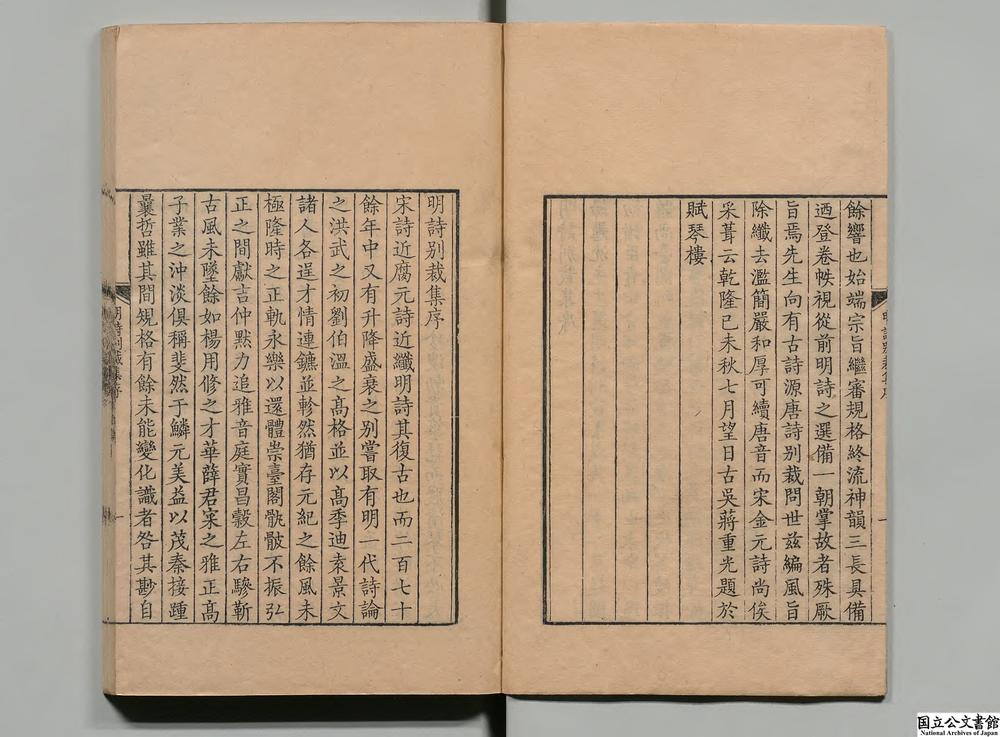 餘響也始端宗旨繼審規格終流神韻三長具備
迺登卷帙視從前明詩之選備一朝掌故者殊厥
旨焉先生向有古詩源唐詩别裁問世兹編風旨
除纖去濫簡嚴和厚可續唐音而宋金元詩尚俟
采葺云乾隆己未秋七月望日古吳蔣重光題於
賦琴樓
明詩别裁集序
宋詩近腐元詩近纖明詩其復古也而二百七十
餘年中又有升降盛衰之别嘗取有明一代詩論
之洪武之初劉伯溫之髙格並以髙季迪袁景文
諸人各逞才情連鑣並軫然猶存元紀之餘風未
極隆時之正軌永樂以還體崇臺閣骫骳不振弘
正之間獻吉仲默力追雅音庭實昌榖左右驂靳
古風未墜餘如楊用修之才華薛君寀之雅正髙
子業之沖淡俱稱斐然于鱗元美益以茂秦接踵
曩哲雖其間規格有餘未能變化識者咎其尠自
明詩别裁集序
一
国立公文書館
National Archives of Japan